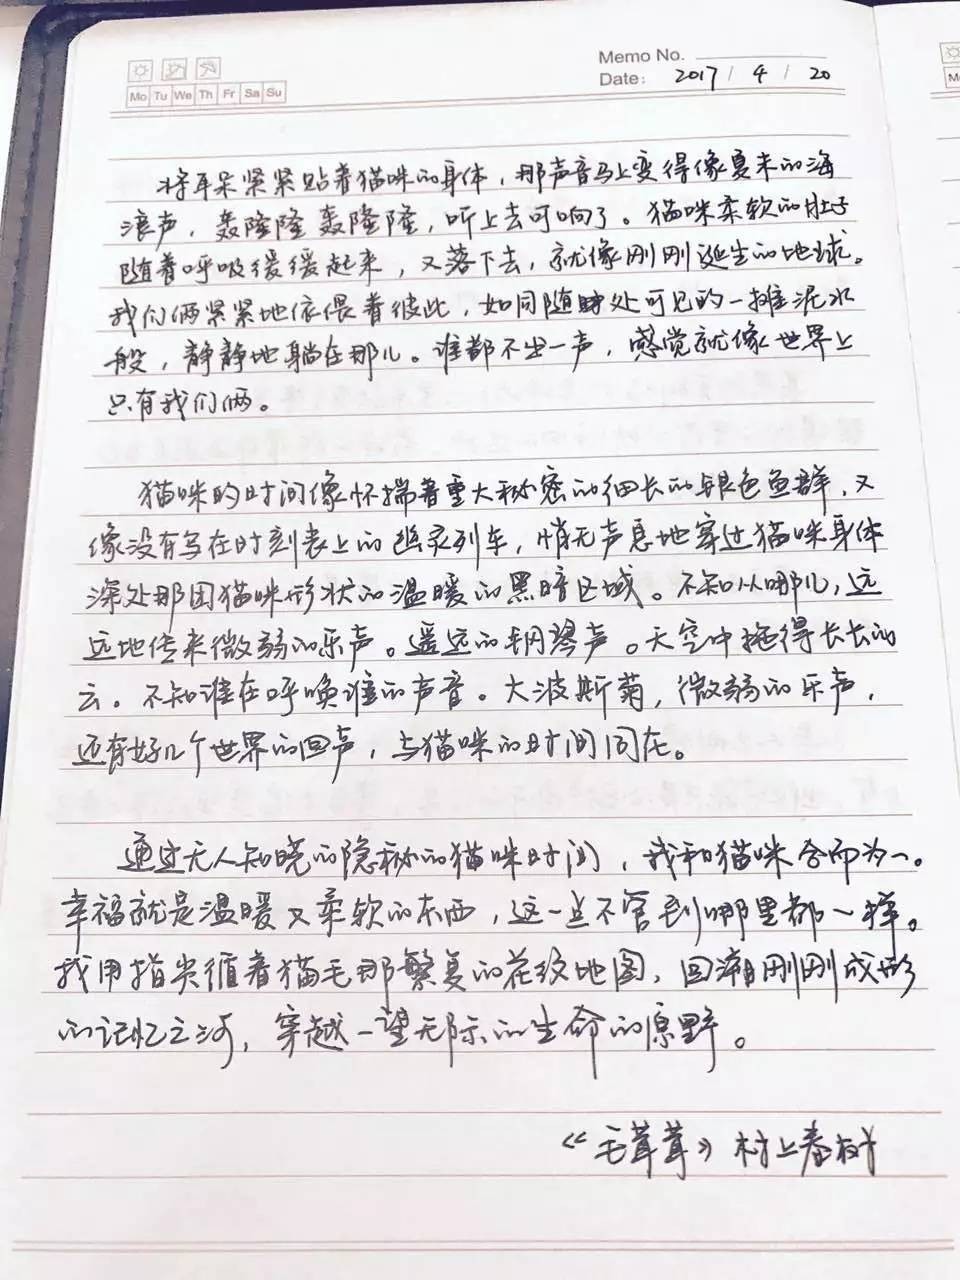 Memo No.
Mo Tu We Th Fr Sa Su
Date: 2017 / 4 / 20
将耳朵紧紧贴着猫咪的身体，那声音马上变得像夏末的海
浪声，轰隆隆轰隆隆，听上去可响了。猫咪柔软的肚子
随着呼吸缓缓起来，又落下去，就像刚刚诞生的地球。
我们俩紧紧地依偎着彼此，如同随时处可见的一摊泥水
般，静静地躺在那儿。谁都不出一声，感觉就像世界上
只有我们俩。
猫咪的时间像怀揣着重大秘密的细长的银色鱼群，又
像没有写在时刻表上的幽灵列车，悄无声息地穿过猫咪身体
深处那团猫咪形状的温暖的黑暗区域。不知从哪儿，远
远地传来微弱的乐声。遥远的钢琴声。天空中拖得长长的
云。不知谁在呼唤谁的声音。大波斯菊，微弱的乐声，
还有好几个世界的回声，与猫咪的时间同在。
通过无人知晓的隐秘的猫咪时间，我和猫咪合而为一。
幸福就是温暖又柔软的东西，这一点不管到哪里都一样。
我用指尖循着猫毛那繁复的花纹地图，回溯刚刚成形
的记忆之河，穿越一望无际的生命的原野。
《毛茸茸》村上春树